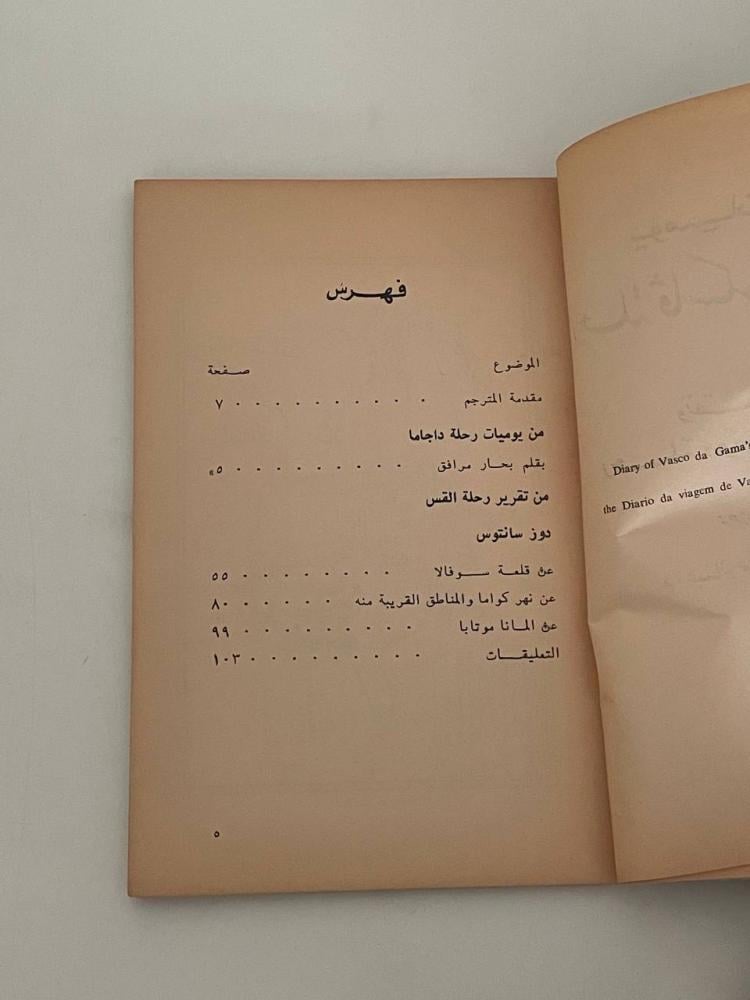 فهرس
الموضوع صفحة
مقدمة المترجم . . . . . . . . . . ٧
من يوميات رحلة داجاما
بقلم بحار مرافق . . . . . . . . .
من تقرير رحلة القس
دوز سانتوس
عن قلعة سوفالا . . . . . . . . ٥٥
عن نهر كواما والمناطق القريبة منه . . . . . ٨٠
عن المانا موتابا . . . . . . . . . ٩٩
التعليقات . . . . . . . . . ١٠٣
٥
Diary of Vasco da Gama's
the Diario da viagem de